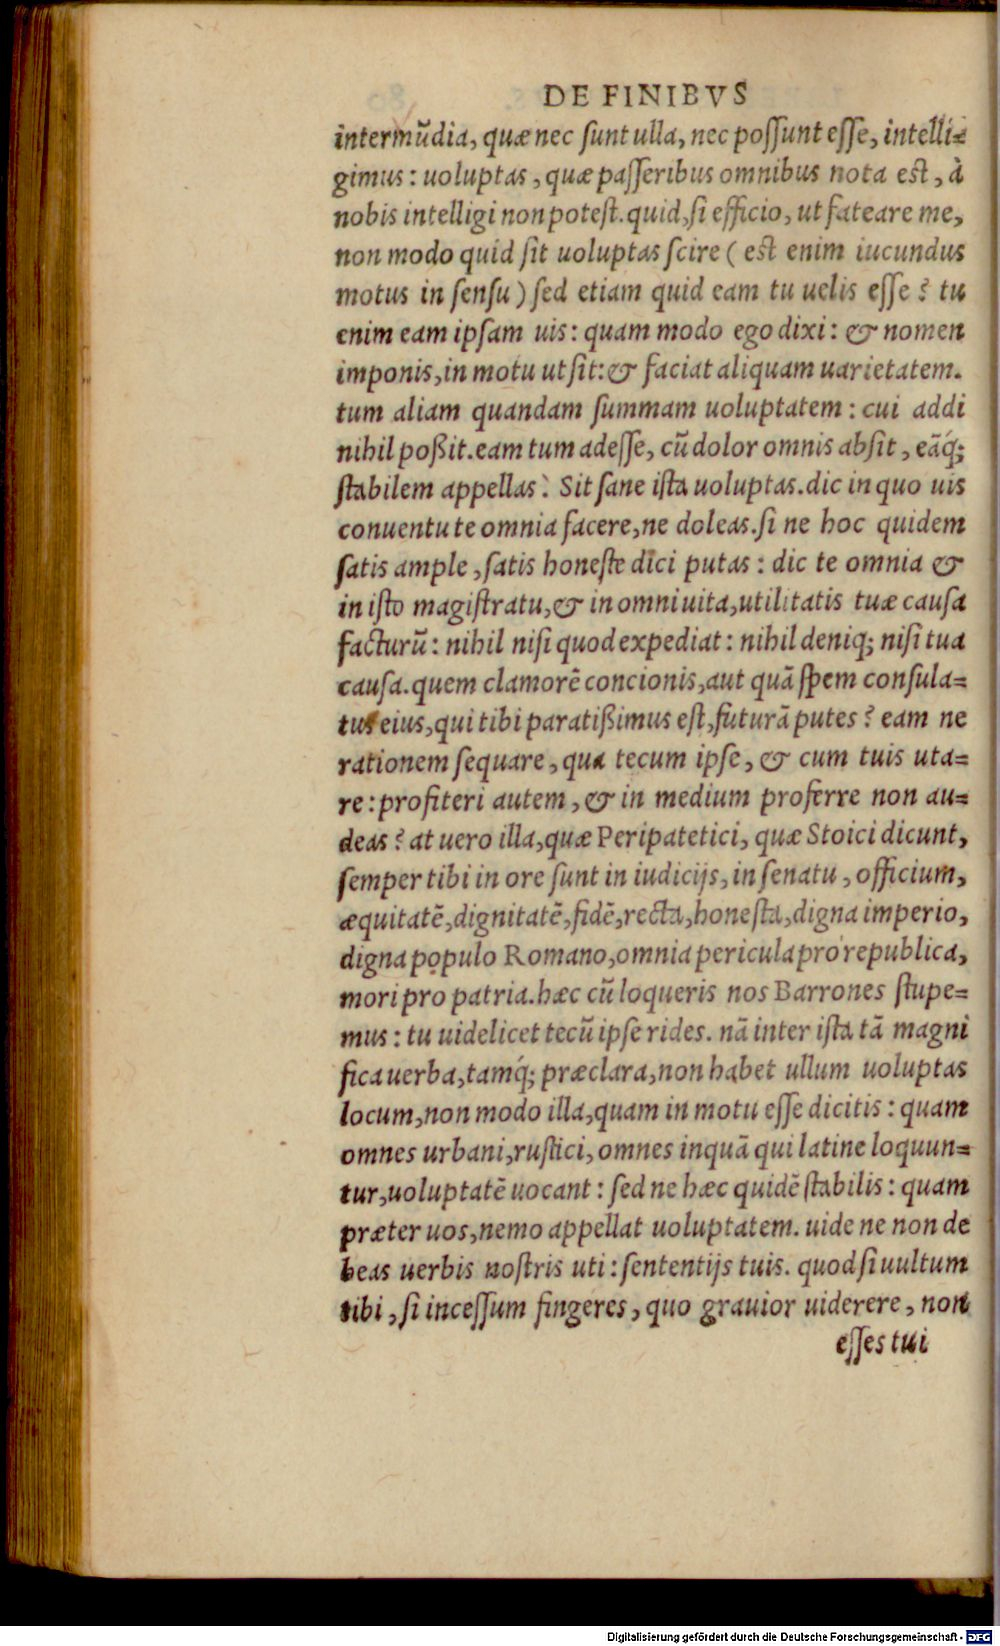 DE FINIBVS
intermũdia, quæ nec ſunt ulla, nec poſſunt eſſe, intelli=
gimus: uoluptas, quæ paſſeribus omnibus nota est, à
nobis intelligi non poteſt. quid, ſi efficio, ut fateare me,
non modo quid ſit uoluptas ſcire ( est enim iucundus
motus in ſenſu ) ſed etiam quid eam tu uelis eſſe? tu
enim eam ipſam uis: quam modo ego dixi: & nomen
imponis, in motu ut ſit: & faciat aliquam uarietatem.
tum aliam quandam ſummam uoluptatem: cui addi
nihil poßit. eam tum adeſſe, cũ dolor omnis abſit, eãq́;
ſtabilem appellas. Sit ſane iſta uoluptas. dic in quo uis
conuentu te omnia facere, ne doleas. ſi ne hoc quidem
ſatis ample, ſatis honeſte dici putas: dic te omnia &
in iſto magiſtratu, & in omni uita, utilitatis tuæ cauſa
facturũ: nihil niſi quod expediat: nihil deniq; niſi tua
cauſa. quem clamorẽ concionis, aut quã ſpem conſula=
tus eius, qui tibi paratißimus eſt, futurã putes? eam ne
rationem ſequare, qua tecum ipſe, & cum tuis uta=
re: profiteri autem, & in medium proferre non au=
deas? at uero illa, quæ Peripatetici, quæ Stoici dicunt,
ſemper tibi in ore ſunt in iudicijs, in ſenatu, officium,
æquitatẽ, dignitatẽ, fidẽ, recta, honeſta, digna imperio,
digna populo Romano, omnia pericula pro republica,
mori pro patria. hæc cũ loqueris nos Barrones ſtupe=
mus: tu uidelicet tecũ ipſe rides. nã inter iſta tã magni
fica uerba, tamq́; præclara, non habet ullum uoluptas
locum, non modo illa, quam in motu eſſe dicitis: quam
omnes urbani, ruſtici, omnes inquã qui latine loquun=
tur, uoluptatẽ uocant: ſed ne hæc quidẽ ſtabilis: quam
præter uos, nemo appellat uoluptatem. uide ne non de
beas uerbis noſtris uti: ſententijs tuis. quod ſi uultum
tibi, ſi inceſſum fingeres, quo grauior uiderere, non
eſſes tui
Digitalisierung gefördert durch die Deutsche Forschungsgemeinschaft - DFG